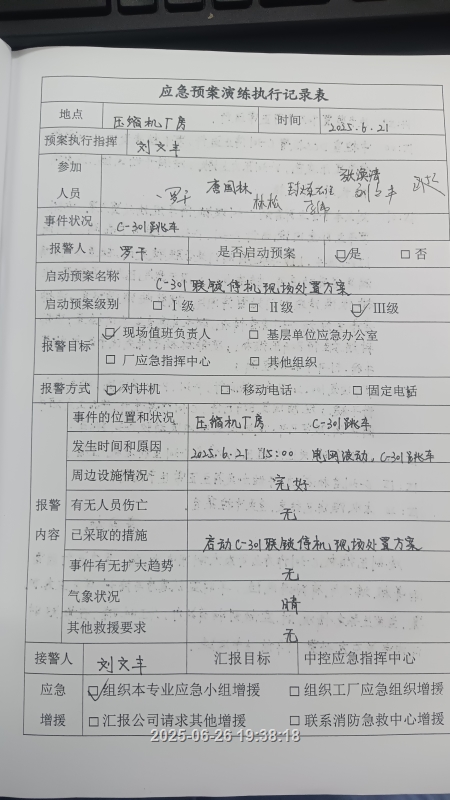 应急预案演练执行记录表
地点 压缩机厂房 时间 2025.6.21
预案执行指挥 刘文丰
参加人员 罗干 唐国林 林松
事件状况 C-301跳车
报警人 罗干 是否启动预案 ☑是 □否
启动预案名称 C-301联锁停机现场处置方案
启动预案级别 □Ⅰ级 □Ⅱ级 ☑Ⅲ级
报警目标 ☑现场值班负责人 □基层单位应急办公室
□厂应急指挥中心 □其他组织
报警方式 ☑对讲机 □移动电话 □固定电话
报警内容 事件的位置和状况 压缩机厂房 C-301跳车
发生时间和原因 2025.6.21 15:00 电网波动,C-301跳车
周边设施情况 完好
有无人员伤亡 无
已采取的措施 启动C-301联锁停机现场处置方案
事件有无扩大趋势 无
气象状况 晴
其他救援要求 无
接警人 刘文丰 汇报目标 中控应急指挥中心
应急增援 ☑组织本专业应急小组增援 □组织工厂应急组织增援
□汇报公司请求其他增援 □联系消防急救中心增援
2025-06-26 19:38:18